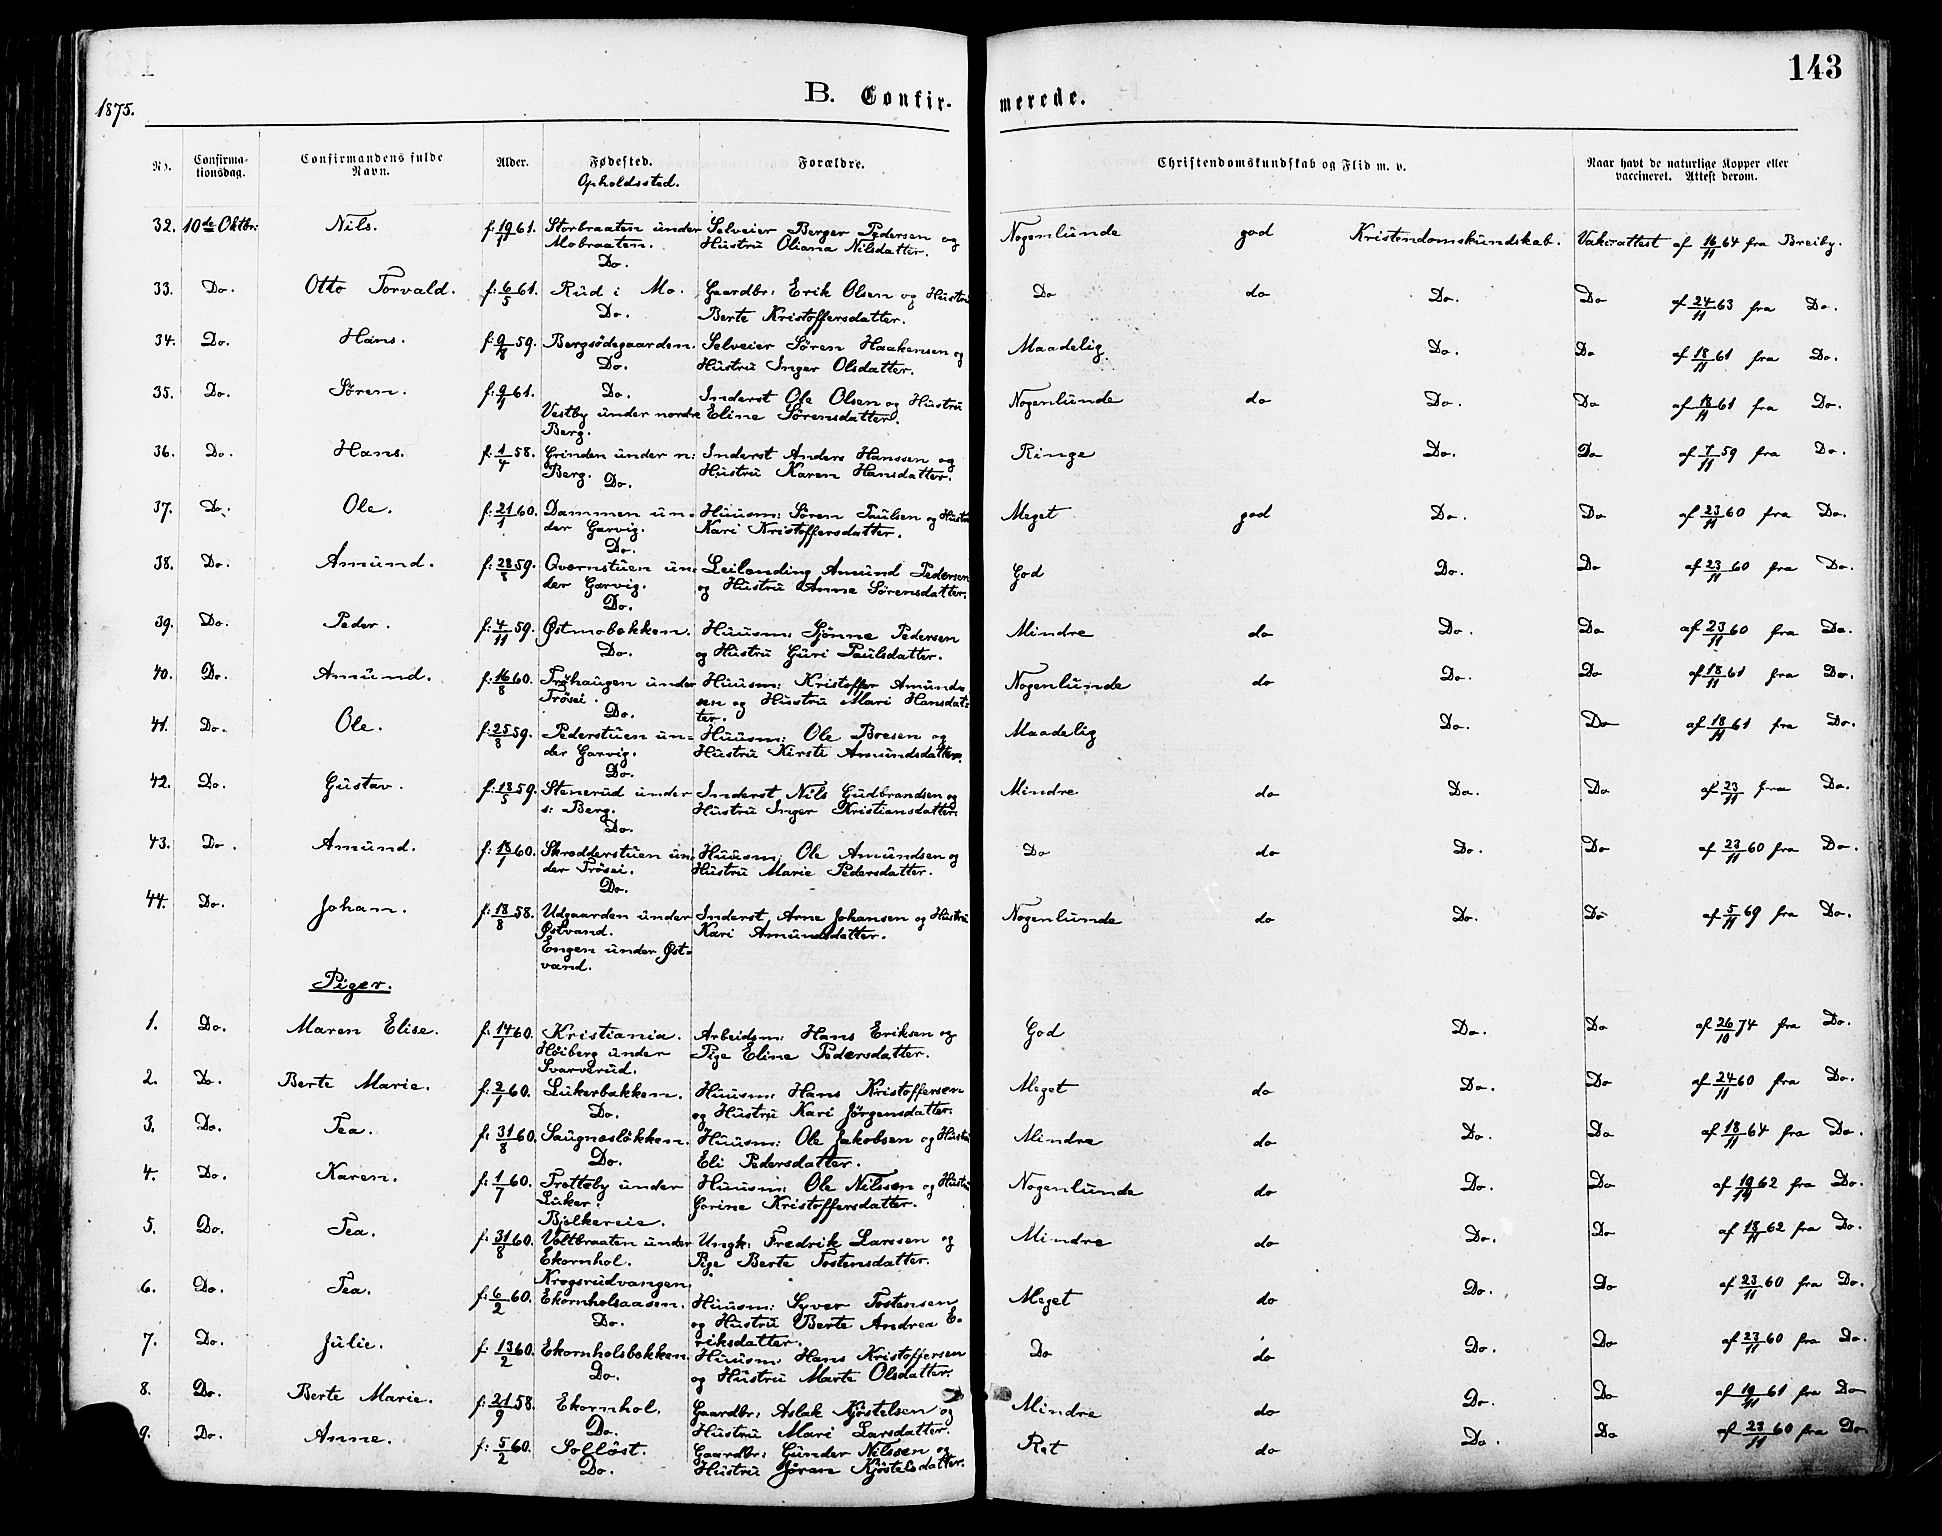 143
1875.
B. Confir- merede.
No. Confirma- Confirmandens fulde Alder. Fødested. Forældre. Christendomskundskab og Flid m. v. Naar havt de naturlige Kopper eller
tionsdag. Navn. Opholdssted. vaccineret. Attest derom.
32. 10de Oktbr: Nils. f: 19/11 61. Storbraaten under Selveier Berger Pedersen og Nogenlunde god Kristendomskundskab. Vakc:attest af 16/11 64 fra Breiby.
Mobraaten. Hustru Oliana Nilsdatter.
Do.
33. Do. Otto Torvald. f: 6/5 61. Rud i Mo. Gaardbr: Erik Olsen og Hustru Do do Do. Do af 24/11 63 fra Do.
Do. Berte Kristoffersdatter.
34. Do. Hans. f: 9/8 59. Bergsødegaarden. Selveier Søren Haakensen og Maadelig Do. Do af 18/11 61 fra Do.
Do. Hustru Inger Olsdatter.
35. Do. Søren. f: 9/11 61. Do. Inderst Ole Olsen og Hustru Nogenlunde do Do. Do af 18/11 61 fra Do.
Vestby under nordre Eline Sørensdatter.
Berg.
36. Do. Hans. f: 1/4 58. Grinden under n: Inderst Anders Hanssen og Ringe Do. Do af 7/11 59 fra Do.
Berg. Hustru Karen Hansdatter.
Do.
37. Do. Ole. f: 21/1 60. Dammen un- Huusm: Søren Paulsen og Hustru Meget god Do. Do af 23/11 60 fra Do.
der Garvig. Kari Kristoffersdatter.
Do.
38. Do. Amund. f: 28/8 59. Qvernstuen un- Leilending Amund Pedersen God Do. Do af 23/11 60 fra Do.
der Garvig. og Hustru Anne Sørensdatter.
Do.
39. Do. Peder. f: 4/11 59. Østmobakken. Huusm: Sjønne Pedersen Mindre do Do. Do af 23/11 60 fra Do.
Do. og Hustru Guri Paulsdatter.
40. Do. Amund. f: 16/8 60. Trøhaugen under Huusm: Kristoffer Amund- Nogenlunde do Do. Do af 18/11 61 fra Do.
Trøsei. sen og Hustru Mari Hansdat-
Do. ter.
41. Do. Ole. f: 25/8 59. Pederstuen un- Huusm: Ole Boesen og Maadelig Do. Do af 18/11 61 fra Do.
der Garvig. Hustru Kirsti Amundsdatter.
Do.
42. Do. Gustav. f: 18/5 59. Stenerud under Inderst Nils Gudbrandsen og Mindre do Do. Do af 23/11 fra Do.
s: Berg. Hustru Inger Kristiansdatter.
Do.
43. Do. Amund. f: 18/1 60. Skredderstuen un- Huusm: Ole Amundsen og Do do Do. Do af 23/11 60 fra Do.
der Trøsei. Hustru Marie Pedersdatter.
Do.
44. Do. Johan. f: 18/8 58. Udgaarden under Inderst Arne Johansen og Hustru Nogenlunde do Do. Do af 5/11 69 fra Do.
Østvand. Kari Amundsdatter.
Engen under Øst-
vand.
Piger.
1. Do. Maren Elise. f: 14/1 60. Kristiania. Arbeidsm: Hans Eriksen og God Do. Do af 26/10 74 fra Do.
Høiberg under Pige Eline Pedersdatter.
Svarverud.
2. Do. Berte Marie. f: 2/1 60. Lukerbakken. Huusm: Hans Kristoffersen Meget do Do. Do af 24/11 60 fra Do.
Do. og Hustru Kari Jørgensdatter.
3. Do. Tea. f: 31/8 60. Saugnesløkken. Huusm: Ole Jakobsen og Hustru Mindre do Do. Do af 18/11 64 fra Do.
Do. Eli Pedersdatter.
4. Do. Karen. f: 1/7 60. Tretteby under Huusm: Ole Nilssen og Hustru Nogenlunde do Do. Do af 19/11 62 fra Do.
Luker. Gorine Kristoffersdatter.
Bjølkereie.
5. Do. Tea. f: 31/8 60. Veltbraaten under Ungk: Fredrik Larssen og Mindre do Do. Do af 18/11 62 fra Do.
Ekornhol. Pige Berte Tostensdatter.
Krogsrudvangen.
6. Do. Tea. f: 6/2 60. Ekornholsaasen. Huusm: Syver Tostensen Meget do Do. Do af 23/11 60 fra Do.
Do. og Hustru Berte Andrea E-
riksdatter.
7. Do. Julie. f: 13/2 60. Ekornholsbakken. Huusm: Hans Kristoffersen Do do Do. Do af 23/11 60 fra Do.
Do. og Hustru Marte Olsdatter.
8. Do. Berte Marie. f: 21/9 58. Ekornhol. Gaardbr: Aslak Kjøstelsen og Mindre do Do. Do af 19/11 61 fra Do
Do. Hustru Mari Larsdatter.
9. Do. Anne. f: 5/2 60. Solløst. Gaardbr: Gunder Nilssen og Ret do Do. Do af 23/11 60 fra Do.
Do. Hustru Jøran Kjøstelsdatter.